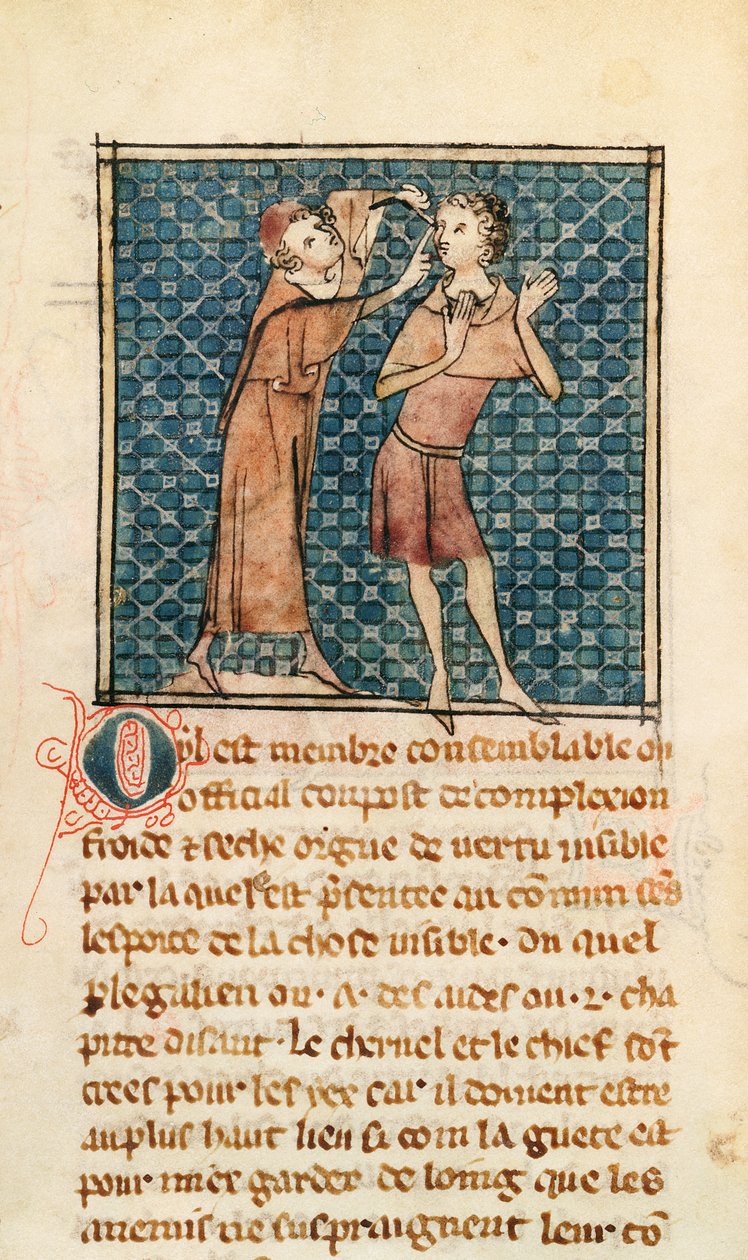 Oyl est membre consemblable ou
official conpost de complexion
froide ⁊ seche orgue de vertu uisible
par la quele est p̄sentee au cōmun sēs
lespoice de la chose uisible. Du quel
ple galien ou .x. des aides ou .2. cha
pitre disant. Le cheruel et le chief sōt
crees pour les yex car il doiuent estre
au plus haut lieu si com la guete est
pour miex garder de loing que les
anemis ne suspraignent leur cō